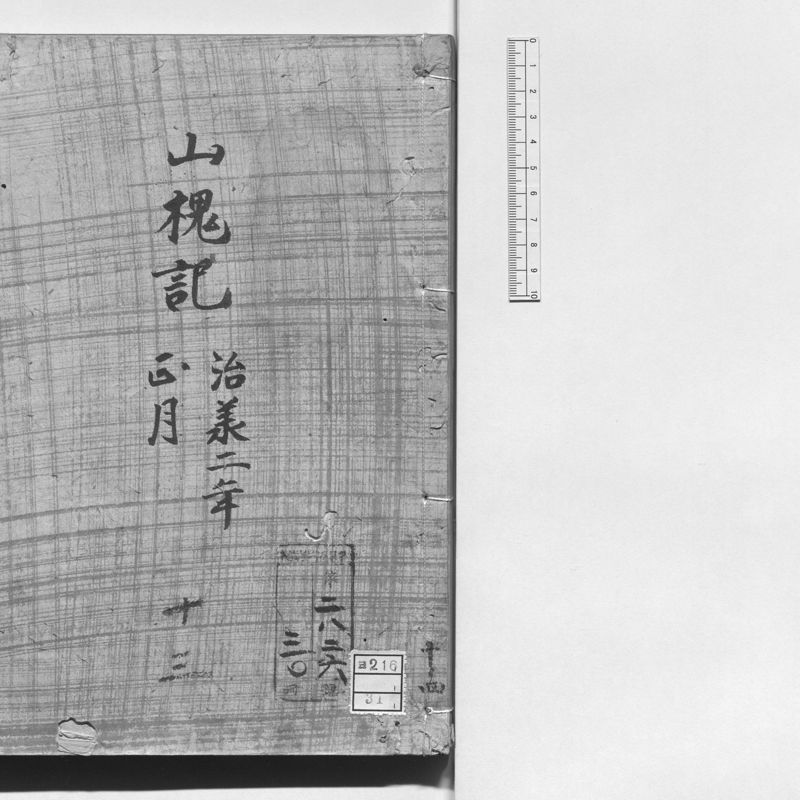 山槐記
治羕二年
正月
十三
二八二六
三〇
216
31
十四
0 1 2 3 4 5 6 7 8 9 10